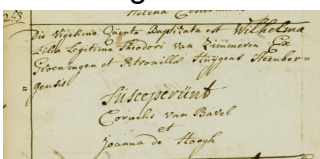 253
Die Vigesima Quinta Baptizata est Wilhelma
Filia Legitima Theodori van Limmeren Ex
Groeningen et Petronilla Huggens Steenber-
gensis
Susceperunt
Cornelis van Bavel
et
Joanna de Hoogh